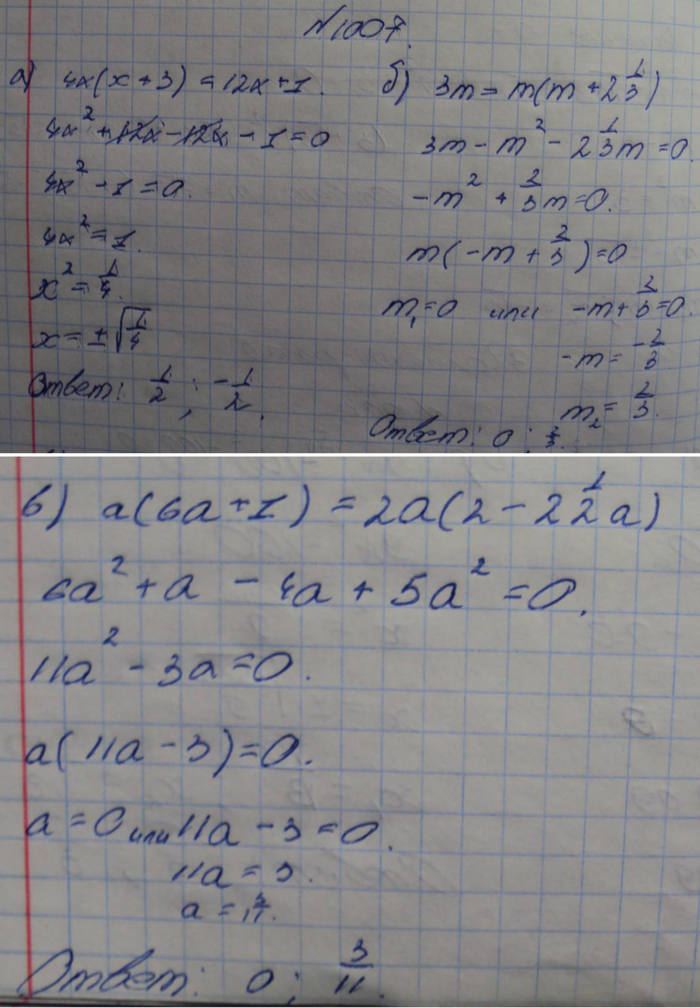 N1007.
а) 4x(x+3)=12x+1.
4x²+12x-12x-1=0
4x²-1=0.
4x²=1.
x²=1/4.
x=±√1/4
Ответ: 1/2; -1/2.
б) 3m=m(m+2 1/3)
3m-m²-2 1/3m=0.
-m²+2/3m=0.
m(-m+2/3)=0
m₁=0 или -m+2/3=0.
-m=-2/3
m₂=2/3.
Ответ: 0; 2/3.
в) a(6a+1)=2a(2-2 1/2a)
6a²+a-4a+5a²=0.
11a²-3a=0.
a(11a-3)=0.
a=0 или 11a-3=0.
11a=3.
a=3/11.
Ответ: 0; 3/11.